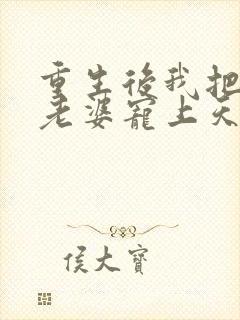 重生後我把
老婆寵上天
侯大寶